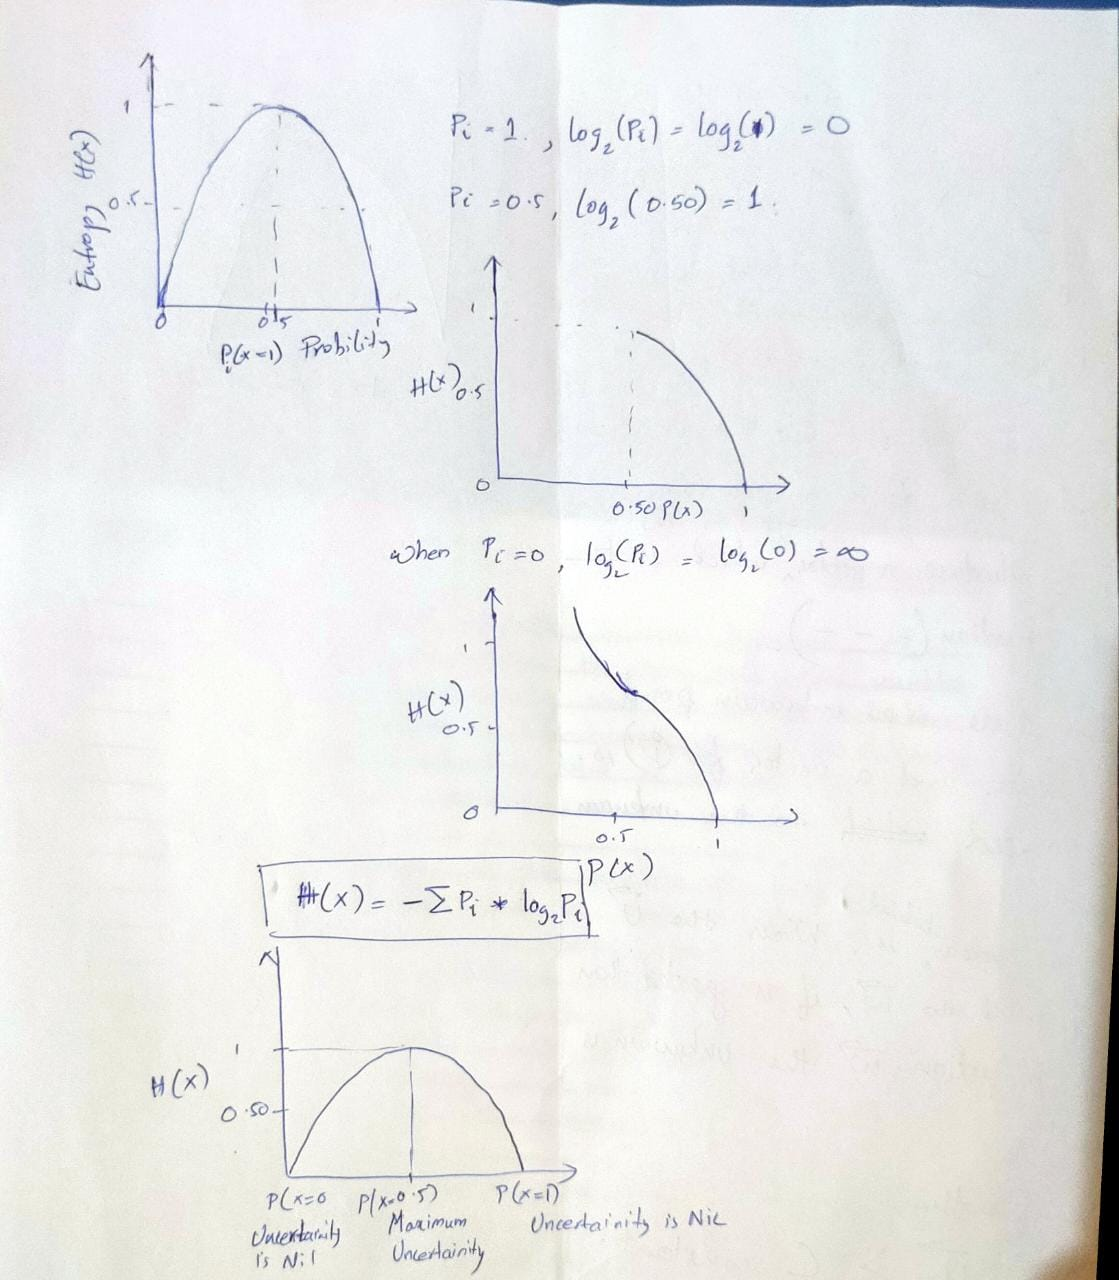 1
Entropy H(x)
0.5
0
0.5
1
P_i(x=1) Probility
P_i = 1. , log_2(P_i) = log_2(1) = 0
P_i = 0.5, log_2(0.50) = 1.
1
H(x)
0.5
0
0.50 P(x)
1
when P_i = 0 , log_2(P_i) = log_2(0) = ∞
1
H(x)
0.5
0
0.5
1
P(x)
H(x) = -Σ P_i * log_2 P_i
1
H(x)
0.50
P(x=0
P(x=0.5)
P(x=1)
Uncertainity
is Nil
Maximum
Uncertainity
Uncertainity is Nil